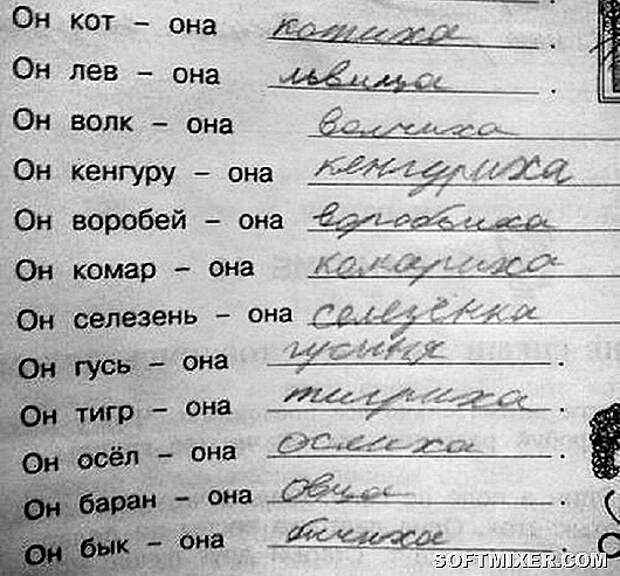 Он кот – она котиха.
Он лев – она львица.
Он волк – она волчиха
Он кенгуру – она кенгуриха
Он воробей – она воробьиха
Он комар – она комариха
Он селезень – она селезёнка
Он гусь – она гусиня.
Он тигр – она тигриха.
Он осёл – она ослиха.
Он баран – она овца.
Он бык – она бичиха.
SOFTMIXER.COM